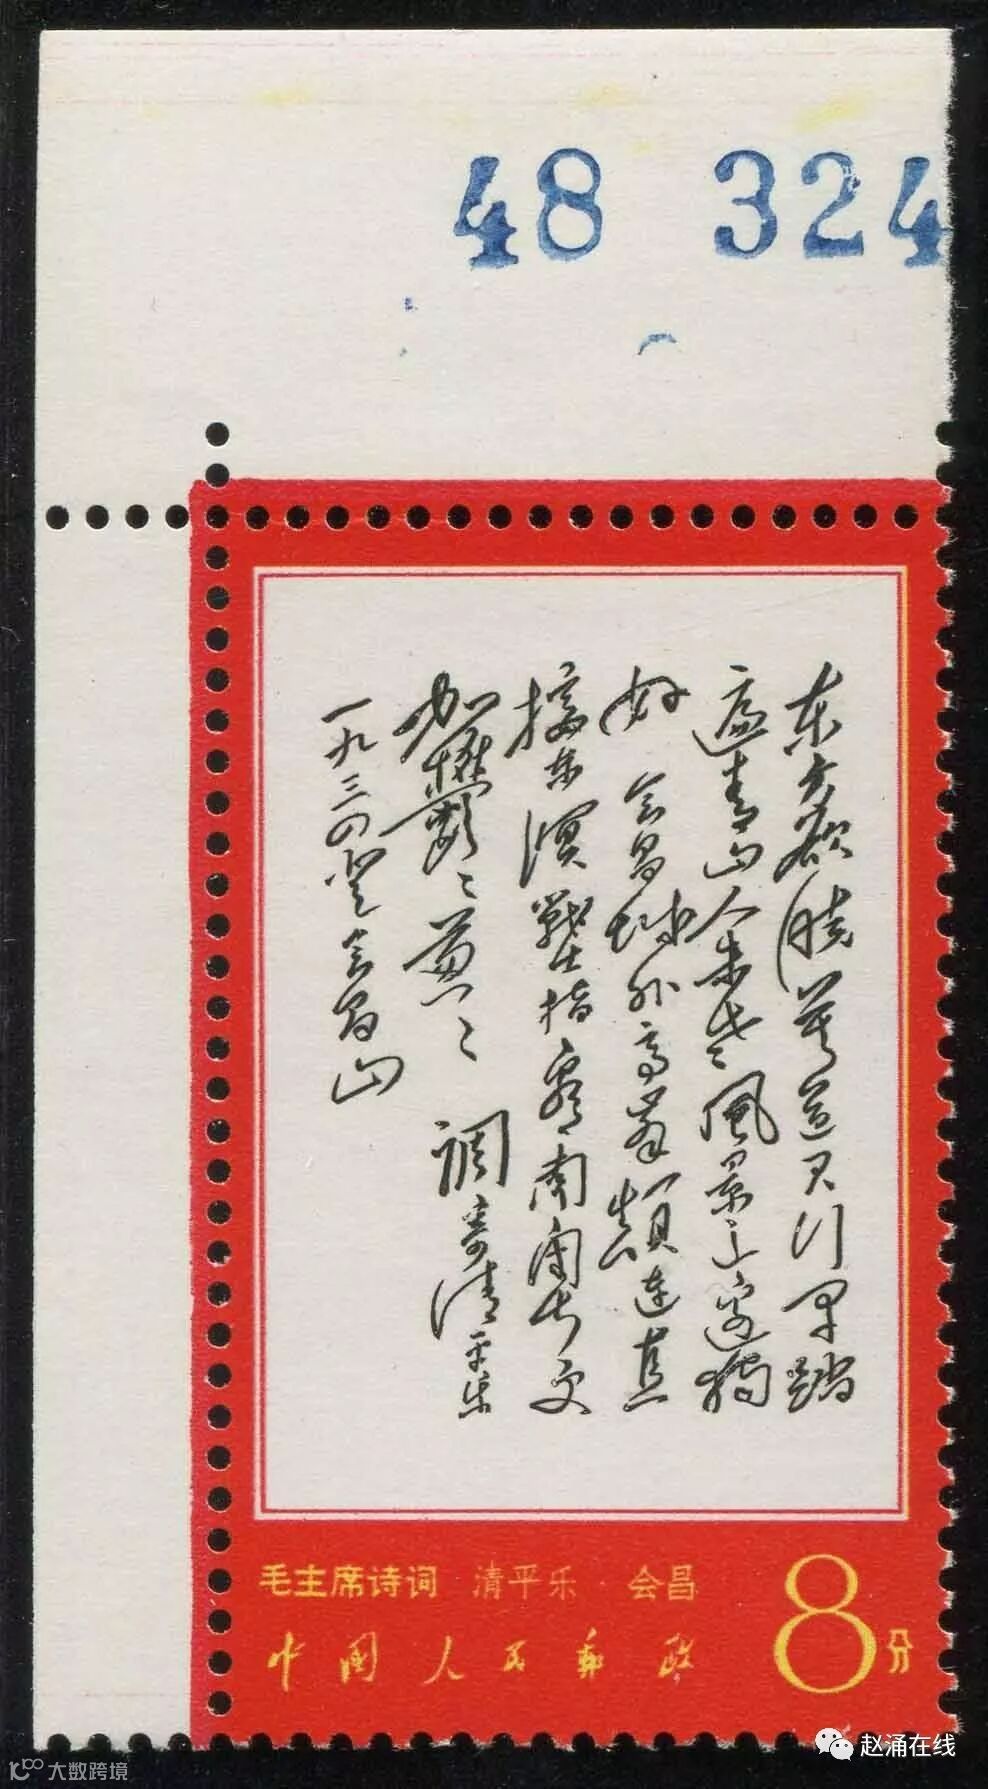 48 324
东方欲晓莫道君行早踏
遍青山人未老风景这边独
好 会昌城外高峰颠连直
接东溟戰士指看南粤更
加欝々葱々 调寄清平乐
一九三四登会昌山
毛主席诗词 清平乐 会昌
8分
中国人民邮政
赵涌在线
大数跨境